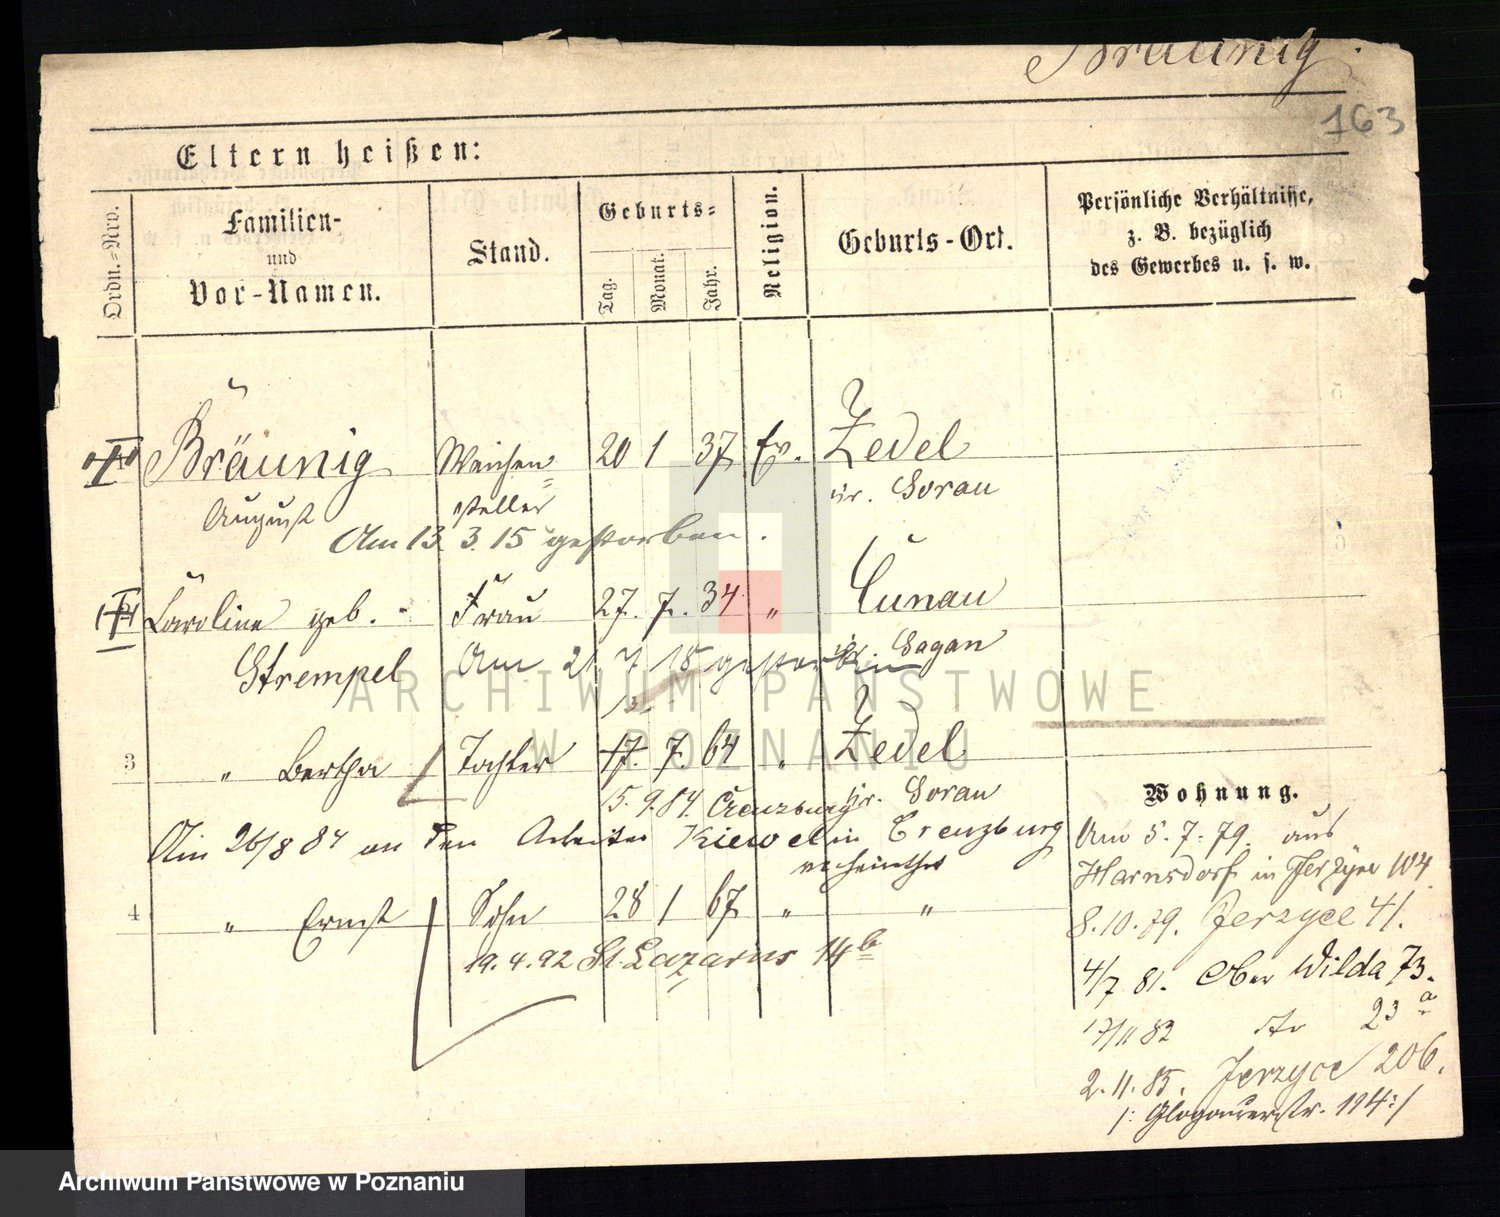 Bräunig.
163
Eltern heißen:
Ordn.-Nro.
Familien-
und
Vor-Namen.
Stand.
Geburts-
Tag.
Monat.
Jahr.
Religion.
Geburts-Ort.
Persönliche Verhältnisse,
z. B. bezüglich
des Gewerbes u. s. w.
Bräunig Weichen= 20 1 37 Ev. Zedel
August steller Kr. Sorau
Am 13. 3. 15 gestorben.
Caroline geb. Frau 27. 7. 34 " Cunau
Strempel Kr. Sagan
Am 21. 7 18 gestorben
3 " Bertha Tochter 17. 7. 64 " Zedel
Kr. Sorau
15. 9. 84. Creuzburg
Am 26/8 84 an den Arbeiter Kiewel in Creuzburg
verheirathet
4 " Ernst Sohn 28 1 67 " "
19. 4. 92 St. Lazarus 14b
Wohnung.
Am 5. 7. 79. aus
Harnsdorf in Jerzyce 104.
8. 10. 79. Jerzyce 41.
4/7 81. Ober Wilda 73.
17/11 82 dto 23a
2. 11. 85. Jerzyce 206.
/: Glogauerstr. 114 :/
ARCHIWUM PAŃSTWOWE
W POZNANIU
Archiwum Państwowe w Poznaniu